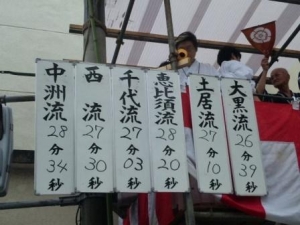 大黒流 26分39秒
土居流 27分10秒
恵比須流 28分20秒
千代流 27分03秒
西流 27分30秒
中洲流 28分34秒